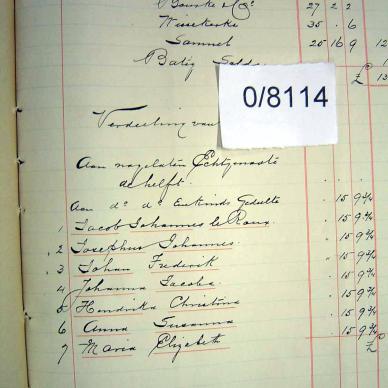 Wissekerke 35 . 6
Sammel 25 16 9 12
Batig Saldo
£ 13
0/8114
Verdeeling van
Aan nagelaten Echtgenoote
de helft.
Aan do do Eenkinds Gedeelte . 15 9¾
1 Jacob Johannes le Roux. . 15 9¾
2 Josephus Johannes. . 15 9¾
3 Johan Frederik . 15 9¾
4 Johanna Jacoba . 15 9¾
5 Hendrika Christina . 15 9¾
6 Anna Susanna . 15 9¾
7 Maria Elizabeth £